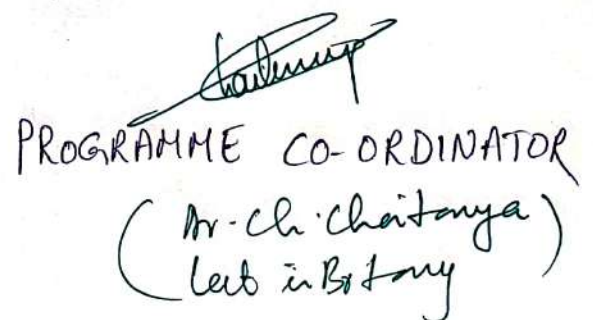 Chaitanya
PROGRAMME CO-ORDINATOR
(Dr. Ch. Chaitanya
Lect in Botany)